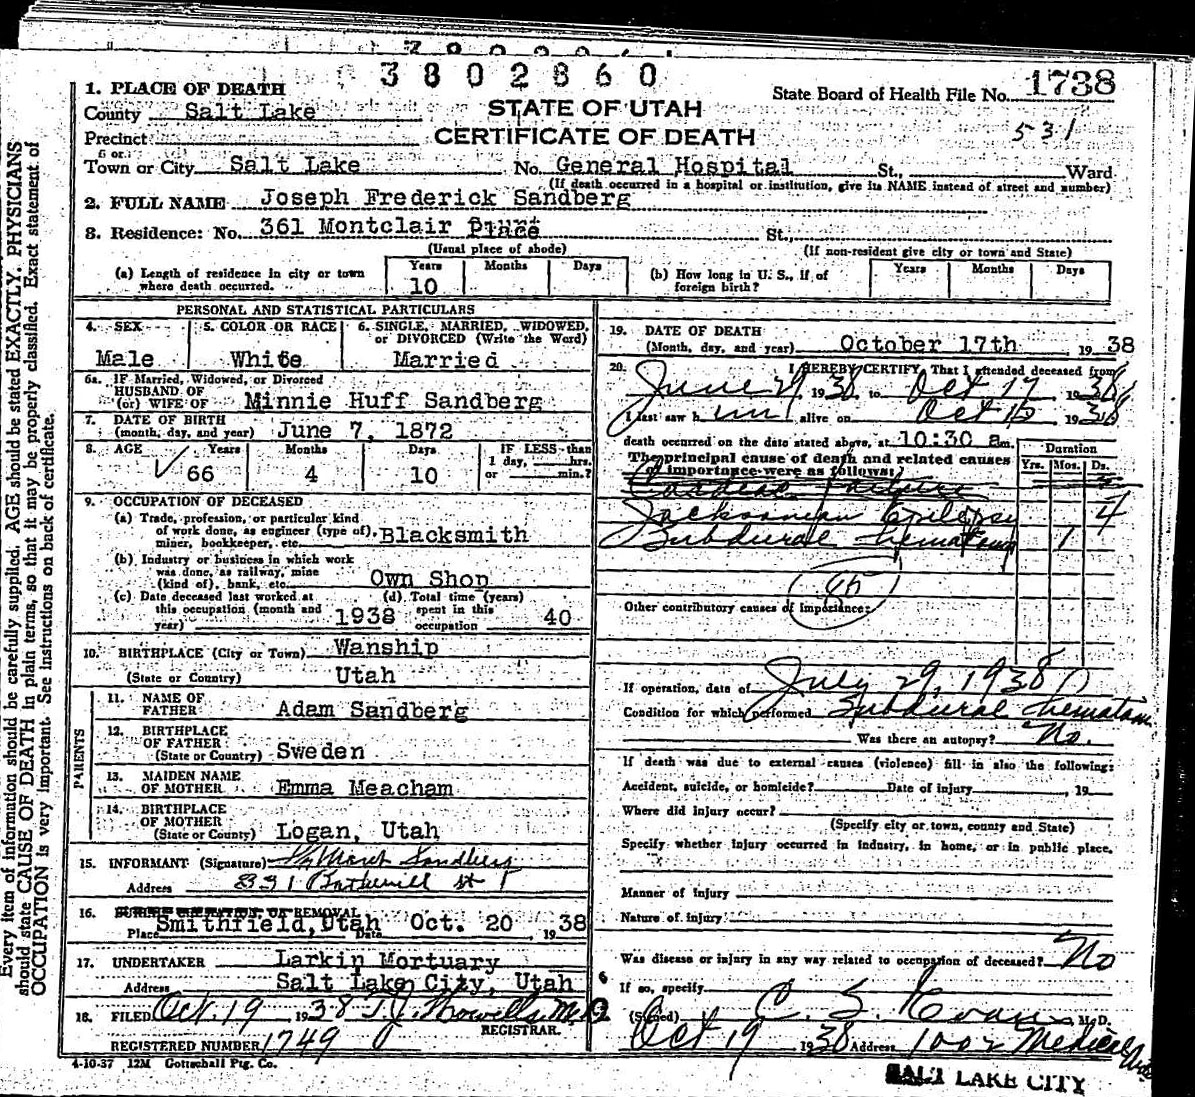 3802860
1. PLACE OF DEATH
State Board of Health File No. 1738
County Salt Lake
STATE OF UTAH
531
Precinct
CERTIFICATE OF DEATH
or
Town or City Salt Lake No. General Hospital St., Ward
(If death occurred in a hospital or institution, give its NAME instead of street and number)
2. FULL NAME Joseph Frederick Sandberg
3. Residence: No. 361 Montclair St.,
(Usual place of abode) (If non-resident give city or town and State)
(a) Length of residence in city or town where death occurred. Years 10 Months Days
(b) How long in U. S., if of foreign birth? Years Months Days
PERSONAL AND STATISTICAL PARTICULARS
4. SEX Male
5. COLOR OR RACE White
6. SINGLE, MARRIED, WIDOWED, or DIVORCED (Write the Word) Married
6a. IF Married, Widowed, or Divorced
HUSBAND OF
(or) WIFE OF Minnie Huff Sandberg
7. DATE OF BIRTH
(month, day, and year) June 7, 1872
8. AGE Years 66 Months 4 Days 10 IF LESS than 1 day, hrs. or min.?
9. OCCUPATION OF DECEASED
(a) Trade, profession, or particular kind
of work done, as engineer (type of),
miner, bookkeeper, etc. Blacksmith
(b) Industry or business in which work
was done, as railway, mine
(kind of), bank, etc. Own Shop
(c) Date deceased last worked at
this occupation (month and
year) 1938
(d) Total time (years)
spent in this
occupation 40
10. BIRTHPLACE (City or Town) Wanship
(State or Country) Utah
PARENTS
11. NAME OF
FATHER Adam Sandberg
12. BIRTHPLACE
OF FATHER
(State or Country) Sweden
13. MAIDEN NAME
OF MOTHER Emma Meacham
14. BIRTHPLACE
OF MOTHER
(State or County) Logan, Utah
15. INFORMANT (Signature) Sandberg
Address St
16. REMOVAL
Place Smithfield, Utah Date Oct. 20, 1938
17. UNDERTAKER Larkin Mortuary
Address Salt Lake City, Utah
18. FILED Oct. 19 1938
REGISTRAR.
REGISTERED NUMBER 1749
4-10-37 12M Gottschall Ptg. Co.
19. DATE OF DEATH
(Month, day, and year) October 17th, 1938
20. I HEREBY CERTIFY, That I attended deceased from
June 29 1938 to Oct 17, 1938
I last saw him alive on Oct 15 1938
death occurred on the date stated above, at 10:30 a m.
The principal cause of death and related causes
of importance were as follows:
Duration
Yrs. Mos. Ds.
Cardiac failure
Jacksonian Epilepsy 4
Subdural hematoma 1
Other contributory causes of importance:
If operation, date of July 29, 1938
Condition for which performed Subdural hematoma
Was there an autopsy? No.
If death was due to external causes (violence) fill in also the following:
Accident, suicide, or homicide? Date of injury, 19
Where did injury occur?
(Specify city or town, county and State)
Specify whether injury occurred in industry, in home, or in public place.
Manner of injury
Nature of injury
Was disease or injury in any way related to occupation of deceased? No
If so, specify
(Signed) C. S. Evans, M. D.
Oct 19 1938 Address 1002 Medical Arts
SALT LAKE CITY
Every item of information should be carefully supplied. AGE should be stated EXACTLY. PHYSICIANS
should state CAUSE OF DEATH in plain terms, so that it may be properly classified. Exact statement of
OCCUPATION is very important. See instructions on back of certificate.